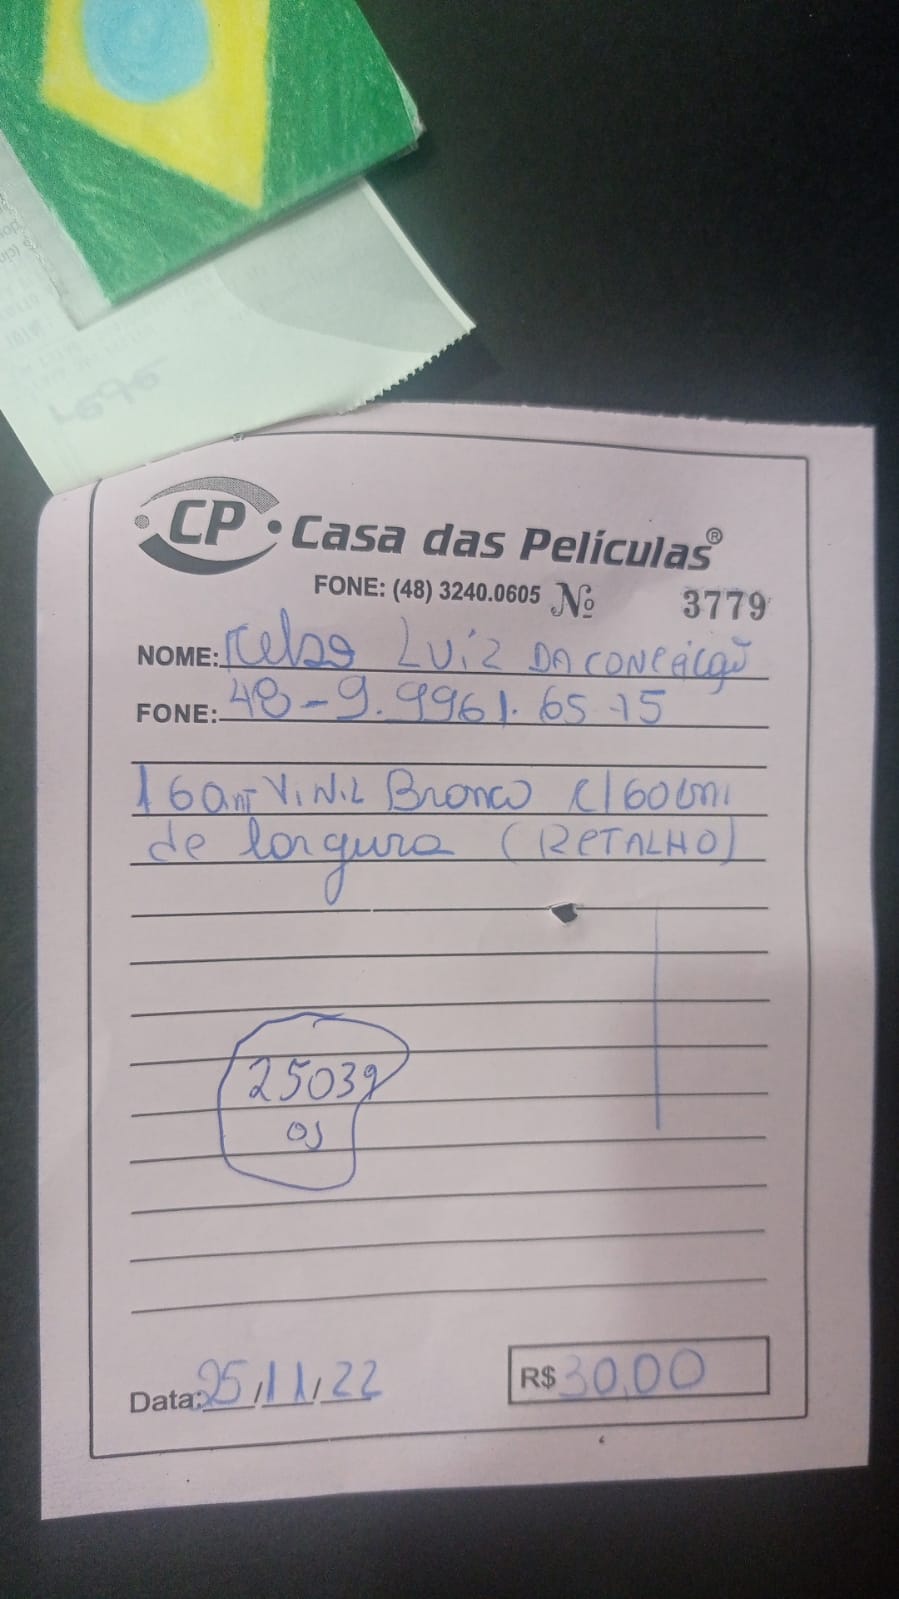 rede
CP Casa das Películas®
FONE: (48) 3240.0605 Nº 3779
NOME: Kelso Luiz DA CONCEICÃO
FONE: 48-9.9961.65 15
Vinil Branco c/60cm
de largura (RETALHO)
25039
OS
Data: 25/11/22
R$ 30,00